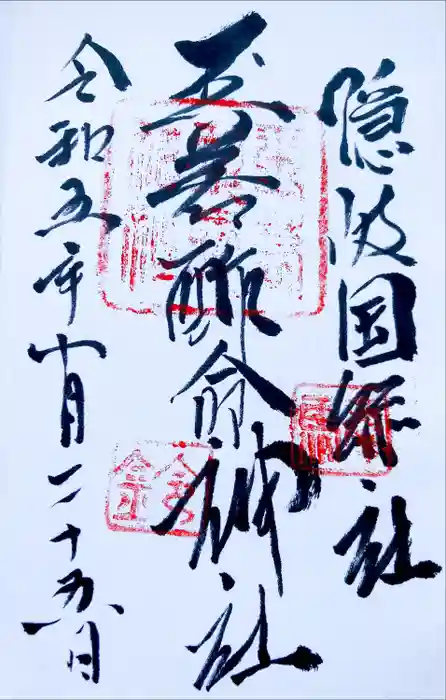 隠岐国総社
玉若酢命神社
令和五年 月二十五日